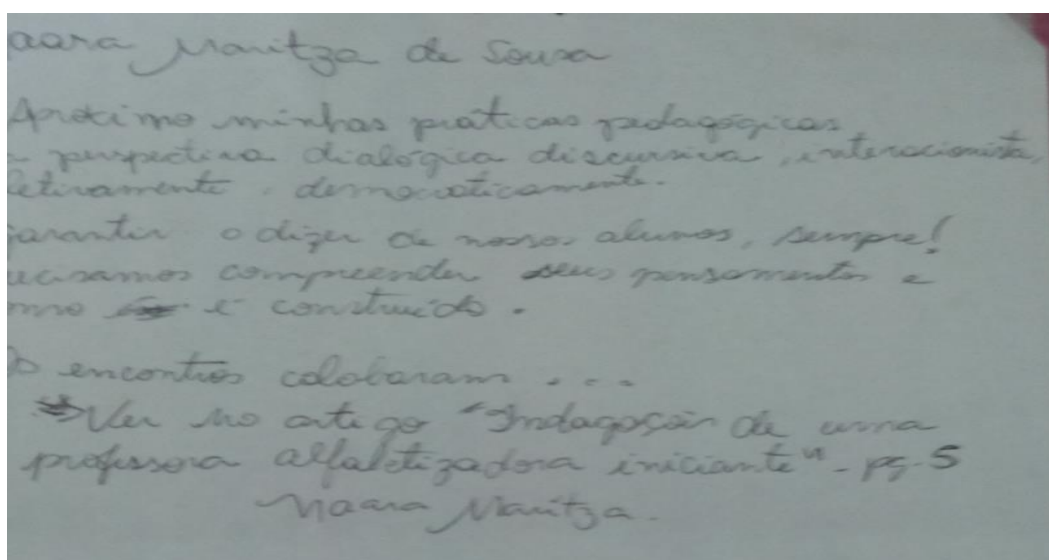 aara Maritza de Sousa
Aproximo minhas práticas pedagógicas
a perspectiva dialógica discursiva, interacionista,
letivamente, democraticamente.
garantir o dizer de nossos alunos, sempre!
ecisamos compreender seus pensamentos e
omo é construído.
Os encontros colobaram...
Ver no artigo "Indagação de uma
professora alfabetizadora iniciante" - pg. 5
Naara Maritza.